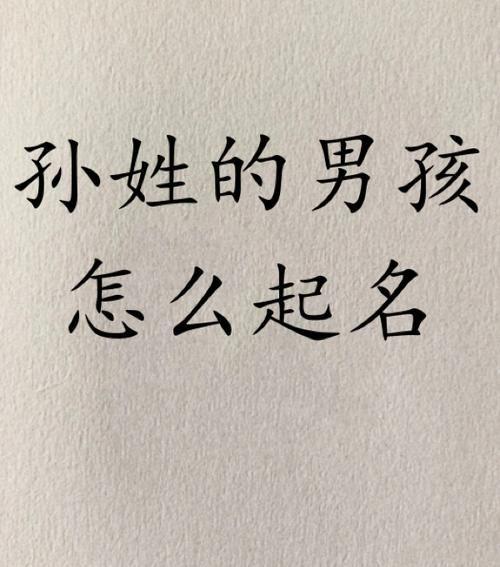 孙姓的男孩
怎么起名